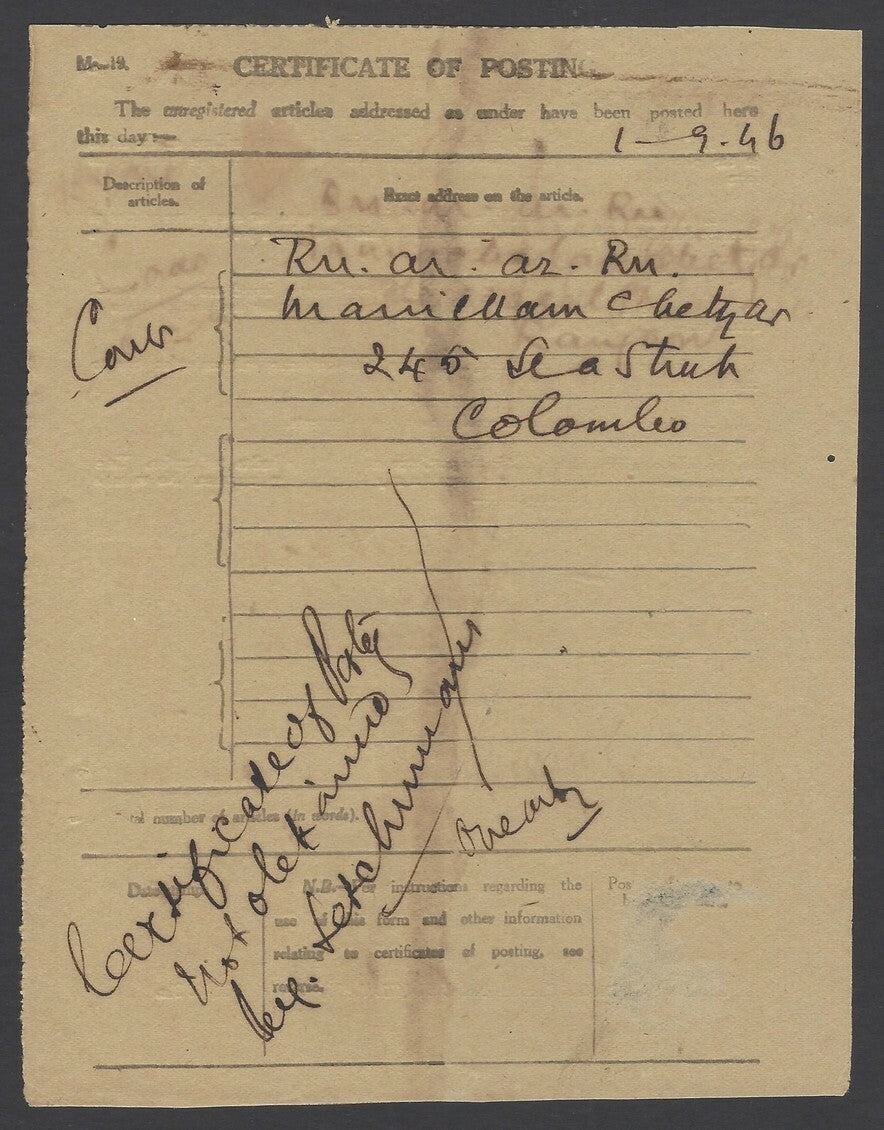 M.—19.
CERTIFICATE OF POSTING
The unregistered articles addressed as under have been posted here
this day:—
1-9-46
Description of
articles.
Exact address on the article.
Cover
Rm. ar. ar. Rm.
Manickam Chettyar
245 Sea Street
Colombo
Certificate of
not obtained
tal number of articles (in words).
One only
N.B.—For instructions regarding the
use of this form and other information
relating to certificates of posting, see
reverse.
Pos to